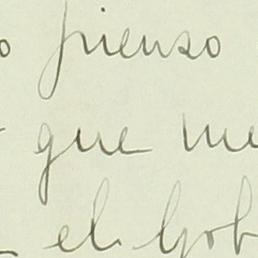 o pienso
que me
el Gob